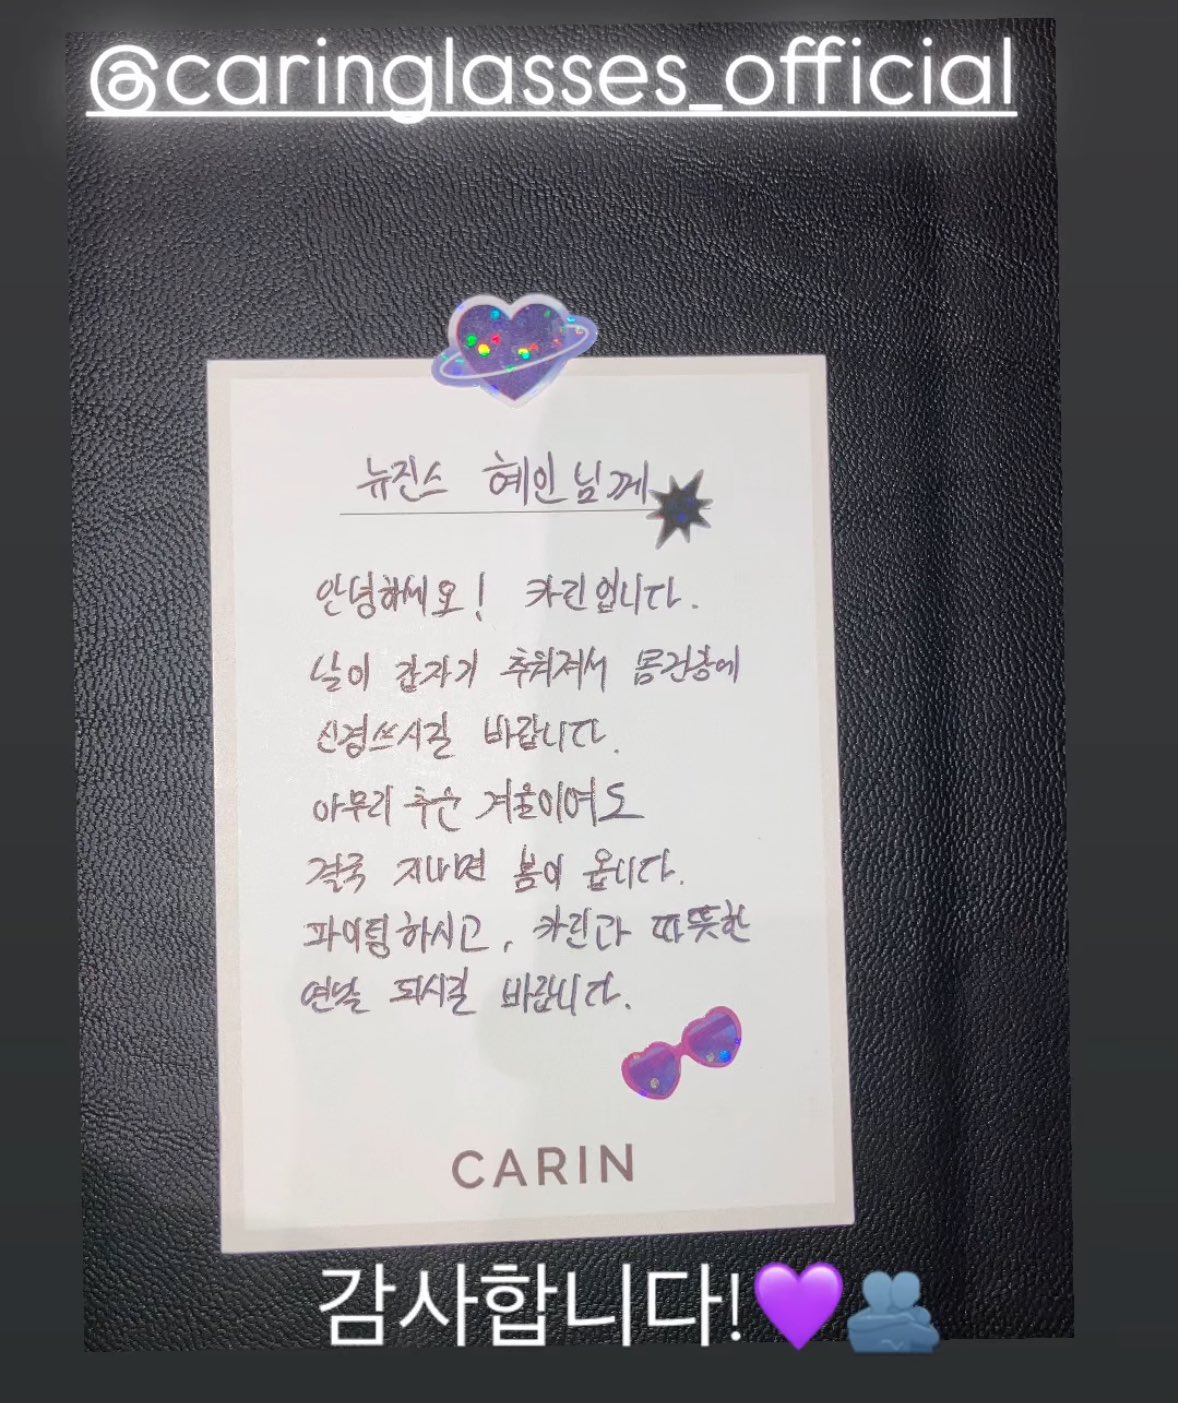 @caringlasses_official
뉴진스 혜인님께
안녕하세요! 카린입니다.
날이 갑자기 추워져서 몸건강에
신경쓰시길 바랍니다.
아무리 추운 겨울이여도
결국 지나면 봄이 옵니다.
파이팅하시고, 카린과 따뜻한
연말 되시길 바랍니다.
CARIN
감사합니다!💜🫂